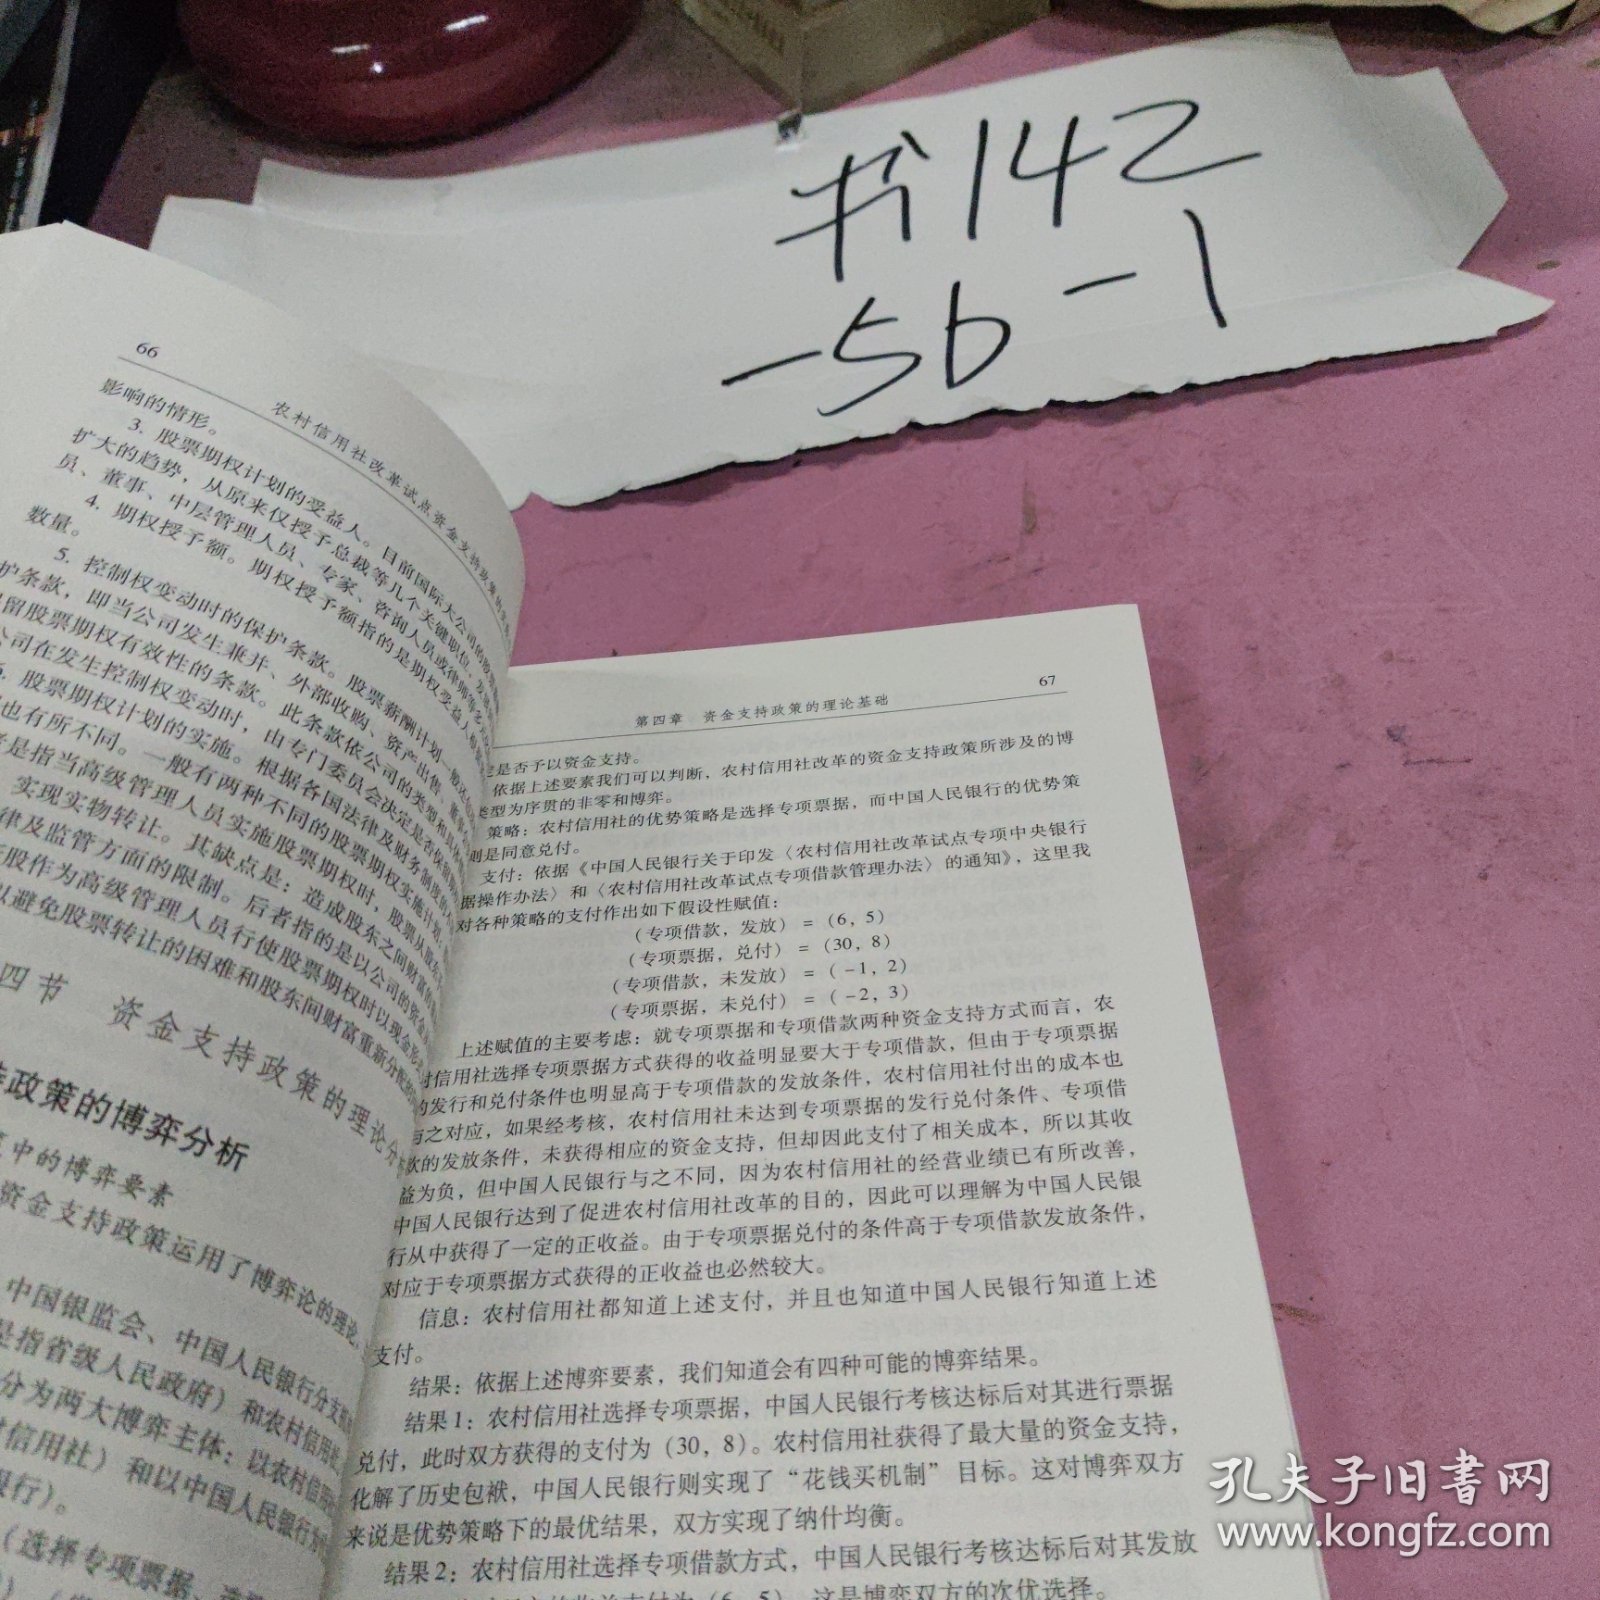 书142
-56-1
66
农村信用社改革试点资金支持政策
影响的情形。
3. 股票期权计划的受益人。目前国际大公司的股
扩大的趋势，从原来仅授予总裁等几个关键职位，发
员、董事、中层管理人员、专家、咨询人员或律师等
4. 期权授予额。期权授予额指的是期权受益人
数量。
5. 控制权变动时的保护条款。股票薪酬计划一般
护条款，即当公司发生兼并、外部收购、资产出售、
留股票期权有效性的条款。此条款依公司的类型和
公司在发生控制权变动时，由专门委员会决定是否
股票期权计划的实施。根据各国法律及财务制度
也有所不同。一般有两种不同的股票期权实施计划：
是指当高级管理人员实施股票期权时，股票从股东
实现实物转让。其缺点是：造成股东之间财富的
律及监管方面的限制。后者指的是以公司的资金
股作为高级管理人员行使股票期权时以现金
以避免股票转让的困难和股东间财富重新分配
四节 资金支持政策的理论分析
政策的博弈分析
中的博弈要素
资金支持政策运用了博弈论的理论，
中国银监会、中国人民银行分支
是指省级人民政府）和农村信用社
分为两大博弈主体：以农村信用
信用社）和以中国人民银行
银行）。
（选择专项票据、
第四章 资金支持政策的理论基础
67
是否予以资金支持。
依据上述要素我们可以判断，农村信用社改革的资金支持政策所涉及的博
类型为序贯的非零和博弈。
策略：农村信用社的优势策略是选择专项票据，而中国人民银行的优势策
则是同意兑付。
支付：依据《中国人民银行关于印发〈农村信用社改革试点专项中央银行
据操作办法〉和〈农村信用社改革试点专项借款管理办法〉的通知》，这里我
对各种策略的支付作出如下假设性赋值：
（专项借款，发放）=（6，5）
（专项票据，兑付）=（30，8）
（专项借款，未发放）=（-1，2）
（专项票据，未兑付）=（-2，3）
上述赋值的主要考虑：就专项票据和专项借款两种资金支持方式而言，农
村信用社选择专项票据方式获得的收益明显要大于专项借款，但由于专项票据
的发行和兑付条件也明显高于专项借款的发放条件，农村信用社付出的成本也
与之对应，如果经考核，农村信用社未达到专项票据的发行兑付条件、专项借
款的发放条件，未获得相应的资金支持，但却因此支付了相关成本，所以其收
益为负，但中国人民银行与之不同，因为农村信用社的经营业绩已有所改善，
中国人民银行达到了促进农村信用社改革的目的，因此可以理解为中国人民银
行从中获得了一定的正收益。由于专项票据兑付的条件高于专项借款发放条件，
对应于专项票据方式获得的正收益也必然较大。
信息：农村信用社都知道上述支付，并且也知道中国人民银行知道上述
支付。
结果：依据上述博弈要素，我们知道会有四种可能的博弈结果。
结果1：农村信用社选择专项票据，中国人民银行考核达标后对其进行票据
兑付，此时双方获得的支付为（30，8）。农村信用社获得了最大量的资金支持，
化解了历史包袱，中国人民银行则实现了“花钱买机制”目标。这对博弈双方
来说是优势策略下的最优结果，双方实现了纳什均衡。
结果2：农村信用社选择专项借款方式，中国人民银行考核达标后对其发放
支付为（6，5），这是博弈双方的次优选择。
孔夫子旧书网
www.kongfz.com